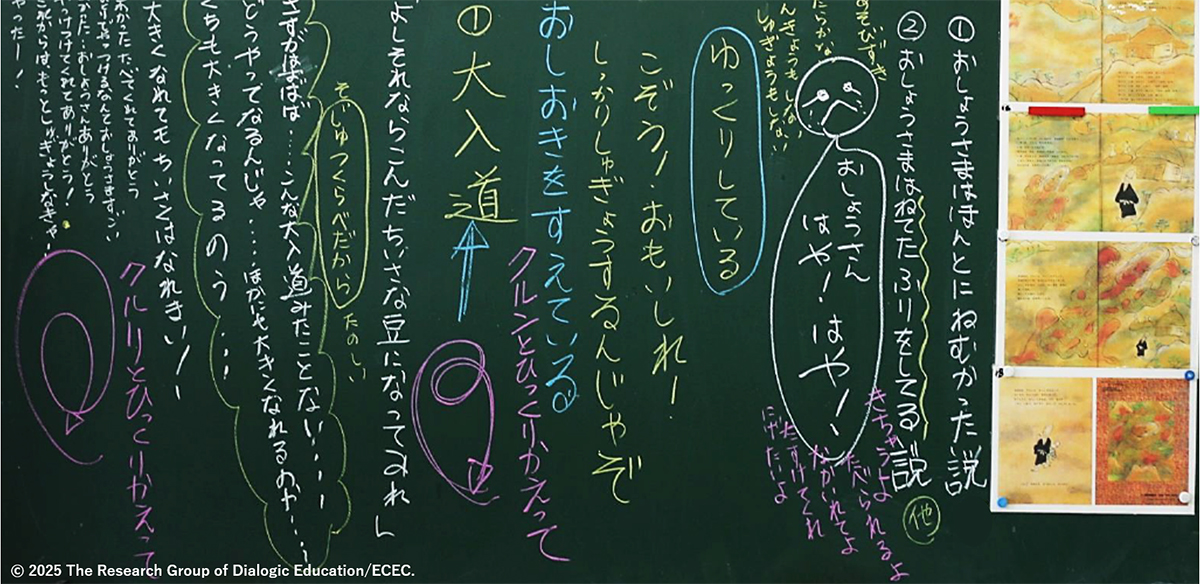 ①おしょうさまはほんとにねむかった説
②おしょうさまはねてたふりをしてる説
他
あそびずき
しゅぎょうもしない
おしょうさん
はや！はや！
きちゃうよ
たべられるよ
たすけてくれ
にげたいよ
ゆっくりしている
こぞう！おもいしれ！
しっかりしゅぎょうするんじゃぞ
おしおきをすえている
クルンとひっくりかえって
①大入道
よしそれならこんだちいさな豆になってみれ
じゅつくらべだから
たのしい
さすがばば…こんな大入道みたことない…
どうやってなるんじゃ…ほかにも大きくなれるのか…
くちも大きくなってるのう…
大きくなれてもちいさくはなれまい！
クルリとひっくりかえって
たべてくれてありがとう
おしょうさんありがとう
やっつけてくれてありがとう！
これからはもっとしゅぎょうしなきゃ
やったー！
© 2025 The Research Group of Dialogic Education/ECEC.